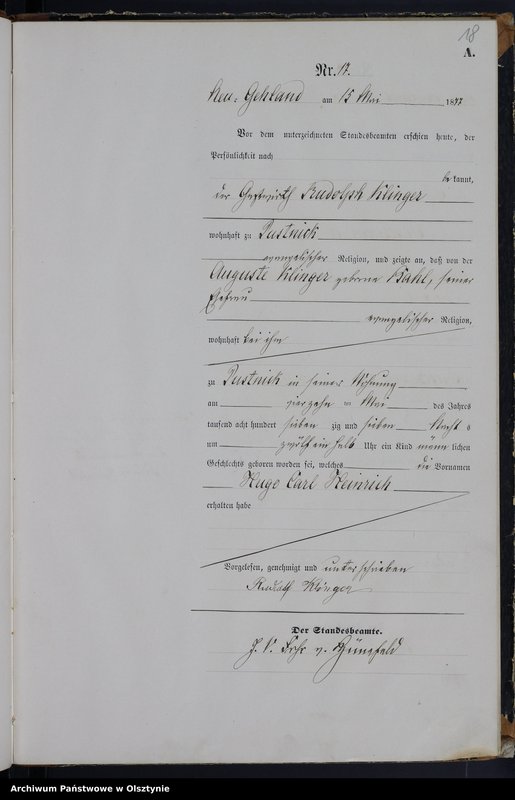 18
A.
Nr. 17.
Neu-Gehland am 15 Mai 1877
Vor dem unterzeichneten Standesbeamten erschien heute, der
Persönlichkeit nach
bekannt,
der Gastwirth Rudolph Klinger
wohnhaft zu Pustnick
evangelischer Religion, und zeigte an, daß von der
Auguste Klinger geborne Kahl, seiner
Ehefrau
evangelischer Religion,
wohnhaft bei ihm
zu Pustnick in seiner Wohnung
am vierzehn ten Mai des Jahres
tausend acht hundert sieben zig und sieben Nachts
um zwölfeinhalb Uhr ein Kind männ lichen
Geschlechts geboren worden sei, welches die Vornamen
Hugo Carl Heinrich
erhalten habe
Vorgelesen, genehmigt und unterschrieben
Rudolf Klinger
Der Standesbeamte.
J. V. Frhr v.
Archiwum Państwowe w Olsztynie